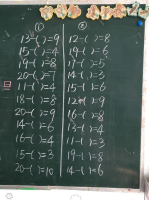 ① ②
13-( )=9 12-( )=8
15-( )=4 19-( )=6
19-( )=8 17-( )=5
20-( )=7 14-( )=3
11-( )=4 15-( )=6
18-( )=8 12-( )=9
20-( )=9 16-( )=8
14-( )=6 13-( )=4
16-( )=4 11-( )=3
15-( )=3 19-( )=8
20-( )=10 14-( )=6